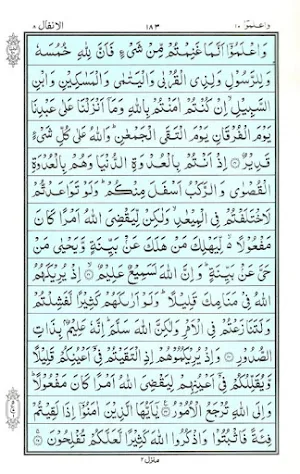 واعلموٓا ١٠
١٨٣
الانفال ٨
وَاعْلَمُوْٓا اَنَّمَا غَنِمْتُمْ مِّنْ شَیْءٍ فَاَنَّ لِلّٰهِ خُمُسَهٗ
وَلِلرَّسُوْلِ وَلِذِی الْقُرْبٰی وَالْیَتٰمٰی وَالْمَسٰكِیْنِ وَابْنِ
السَّبِیْلِ ۙ اِنْ كُنْتُمْ اٰمَنْتُمْ بِاللّٰهِ وَمَآ اَنْزَلْنَا عَلٰی عَبْدِنَا
یَوْمَ الْفُرْقَانِ یَوْمَ الْتَقَی الْجَمْعٰنِ ؕ وَاللّٰهُ عَلٰی كُلِّ شَیْءٍ
قَدِیْرٌ ۝ اِذْ اَنْتُمْ بِالْعُدْوَةِ الدُّنْیَا وَهُمْ بِالْعُدْوَةِ
الْقُصْوٰی وَالرَّكْبُ اَسْفَلَ مِنْكُمْ ؕ وَلَوْ تَوَاعَدْتُّمْ
لَاخْتَلَفْتُمْ فِی الْمِیْعٰدِ ۙ وَلٰكِنْ لِّیَقْضِیَ اللّٰهُ اَمْرًا كَانَ
مَفْعُوْلًا ۙ۬ لِّیَهْلِكَ مَنْ هَلَكَ عَنْۢ بَیِّنَةٍ وَّیَحْیٰی مَنْ
حَیَّ عَنْۢ بَیِّنَةٍ ؕ وَاِنَّ اللّٰهَ لَسَمِیْعٌ عَلِیْمٌ ۝ اِذْ یُرِیْكَهُمُ
اللّٰهُ فِیْ مَنَامِكَ قَلِیْلًا ؕ وَلَوْ اَرٰىكَهُمْ كَثِیْرًا لَّفَشِلْتُمْ
وَلَتَنَازَعْتُمْ فِی الْاَمْرِ وَلٰكِنَّ اللّٰهَ سَلَّمَ ؕ اِنَّهٗ عَلِیْمٌۢ بِذَاتِ
الصُّدُوْرِ ۝ وَاِذْ یُرِیْكُمُوْهُمْ اِذِ الْتَقَیْتُمْ فِیْٓ اَعْیُنِكُمْ قَلِیْلًا
وَّیُقَلِّلُكُمْ فِیْٓ اَعْیُنِهِمْ لِیَقْضِیَ اللّٰهُ اَمْرًا كَانَ مَفْعُوْلًا ؕ
وَاِلَی اللّٰهِ تُرْجَعُ الْاُمُوْرُ ۝ یٰٓاَیُّهَا الَّذِیْنَ اٰمَنُوْٓا اِذَا لَقِیْتُمْ
فِئَةً فَاثْبُتُوْا وَاذْكُرُوا اللّٰهَ كَثِیْرًا لَّعَلَّكُمْ تُفْلِحُوْنَ ۝
منزل ٢